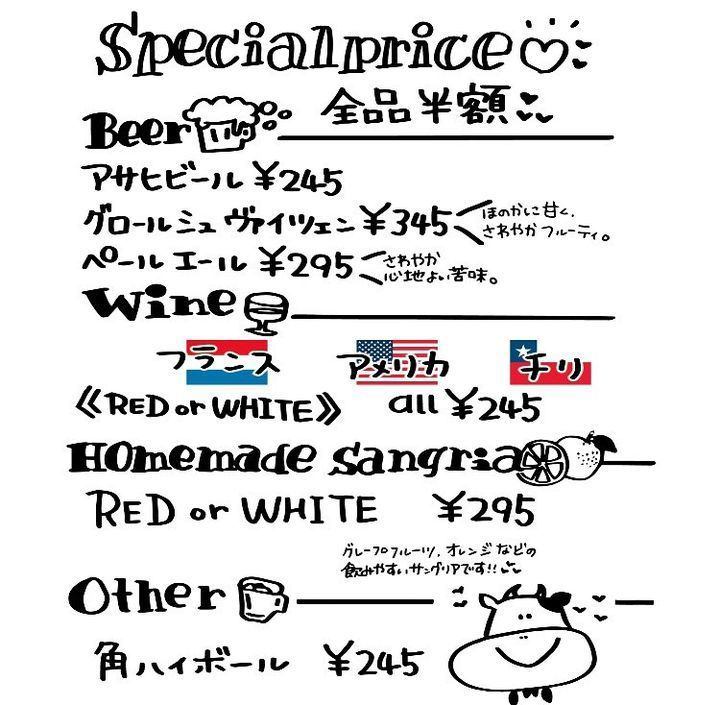 Special price
全品半額
Beer
アサヒビール ¥245
グロールシュ ヴァイツェン ¥345
ほのかに甘く、
さわやかフルーティ。
ペールエール ¥295
さわやか
心地よい苦味。
Wine
フランス アメリカ チリ
《RED or WHITE》 all ¥245
Homemade Sangria
RED or WHITE ¥295
グレープフルーツ、オレンジなどの
飲みやすいサングリアです!!
Other
角ハイボール ¥245